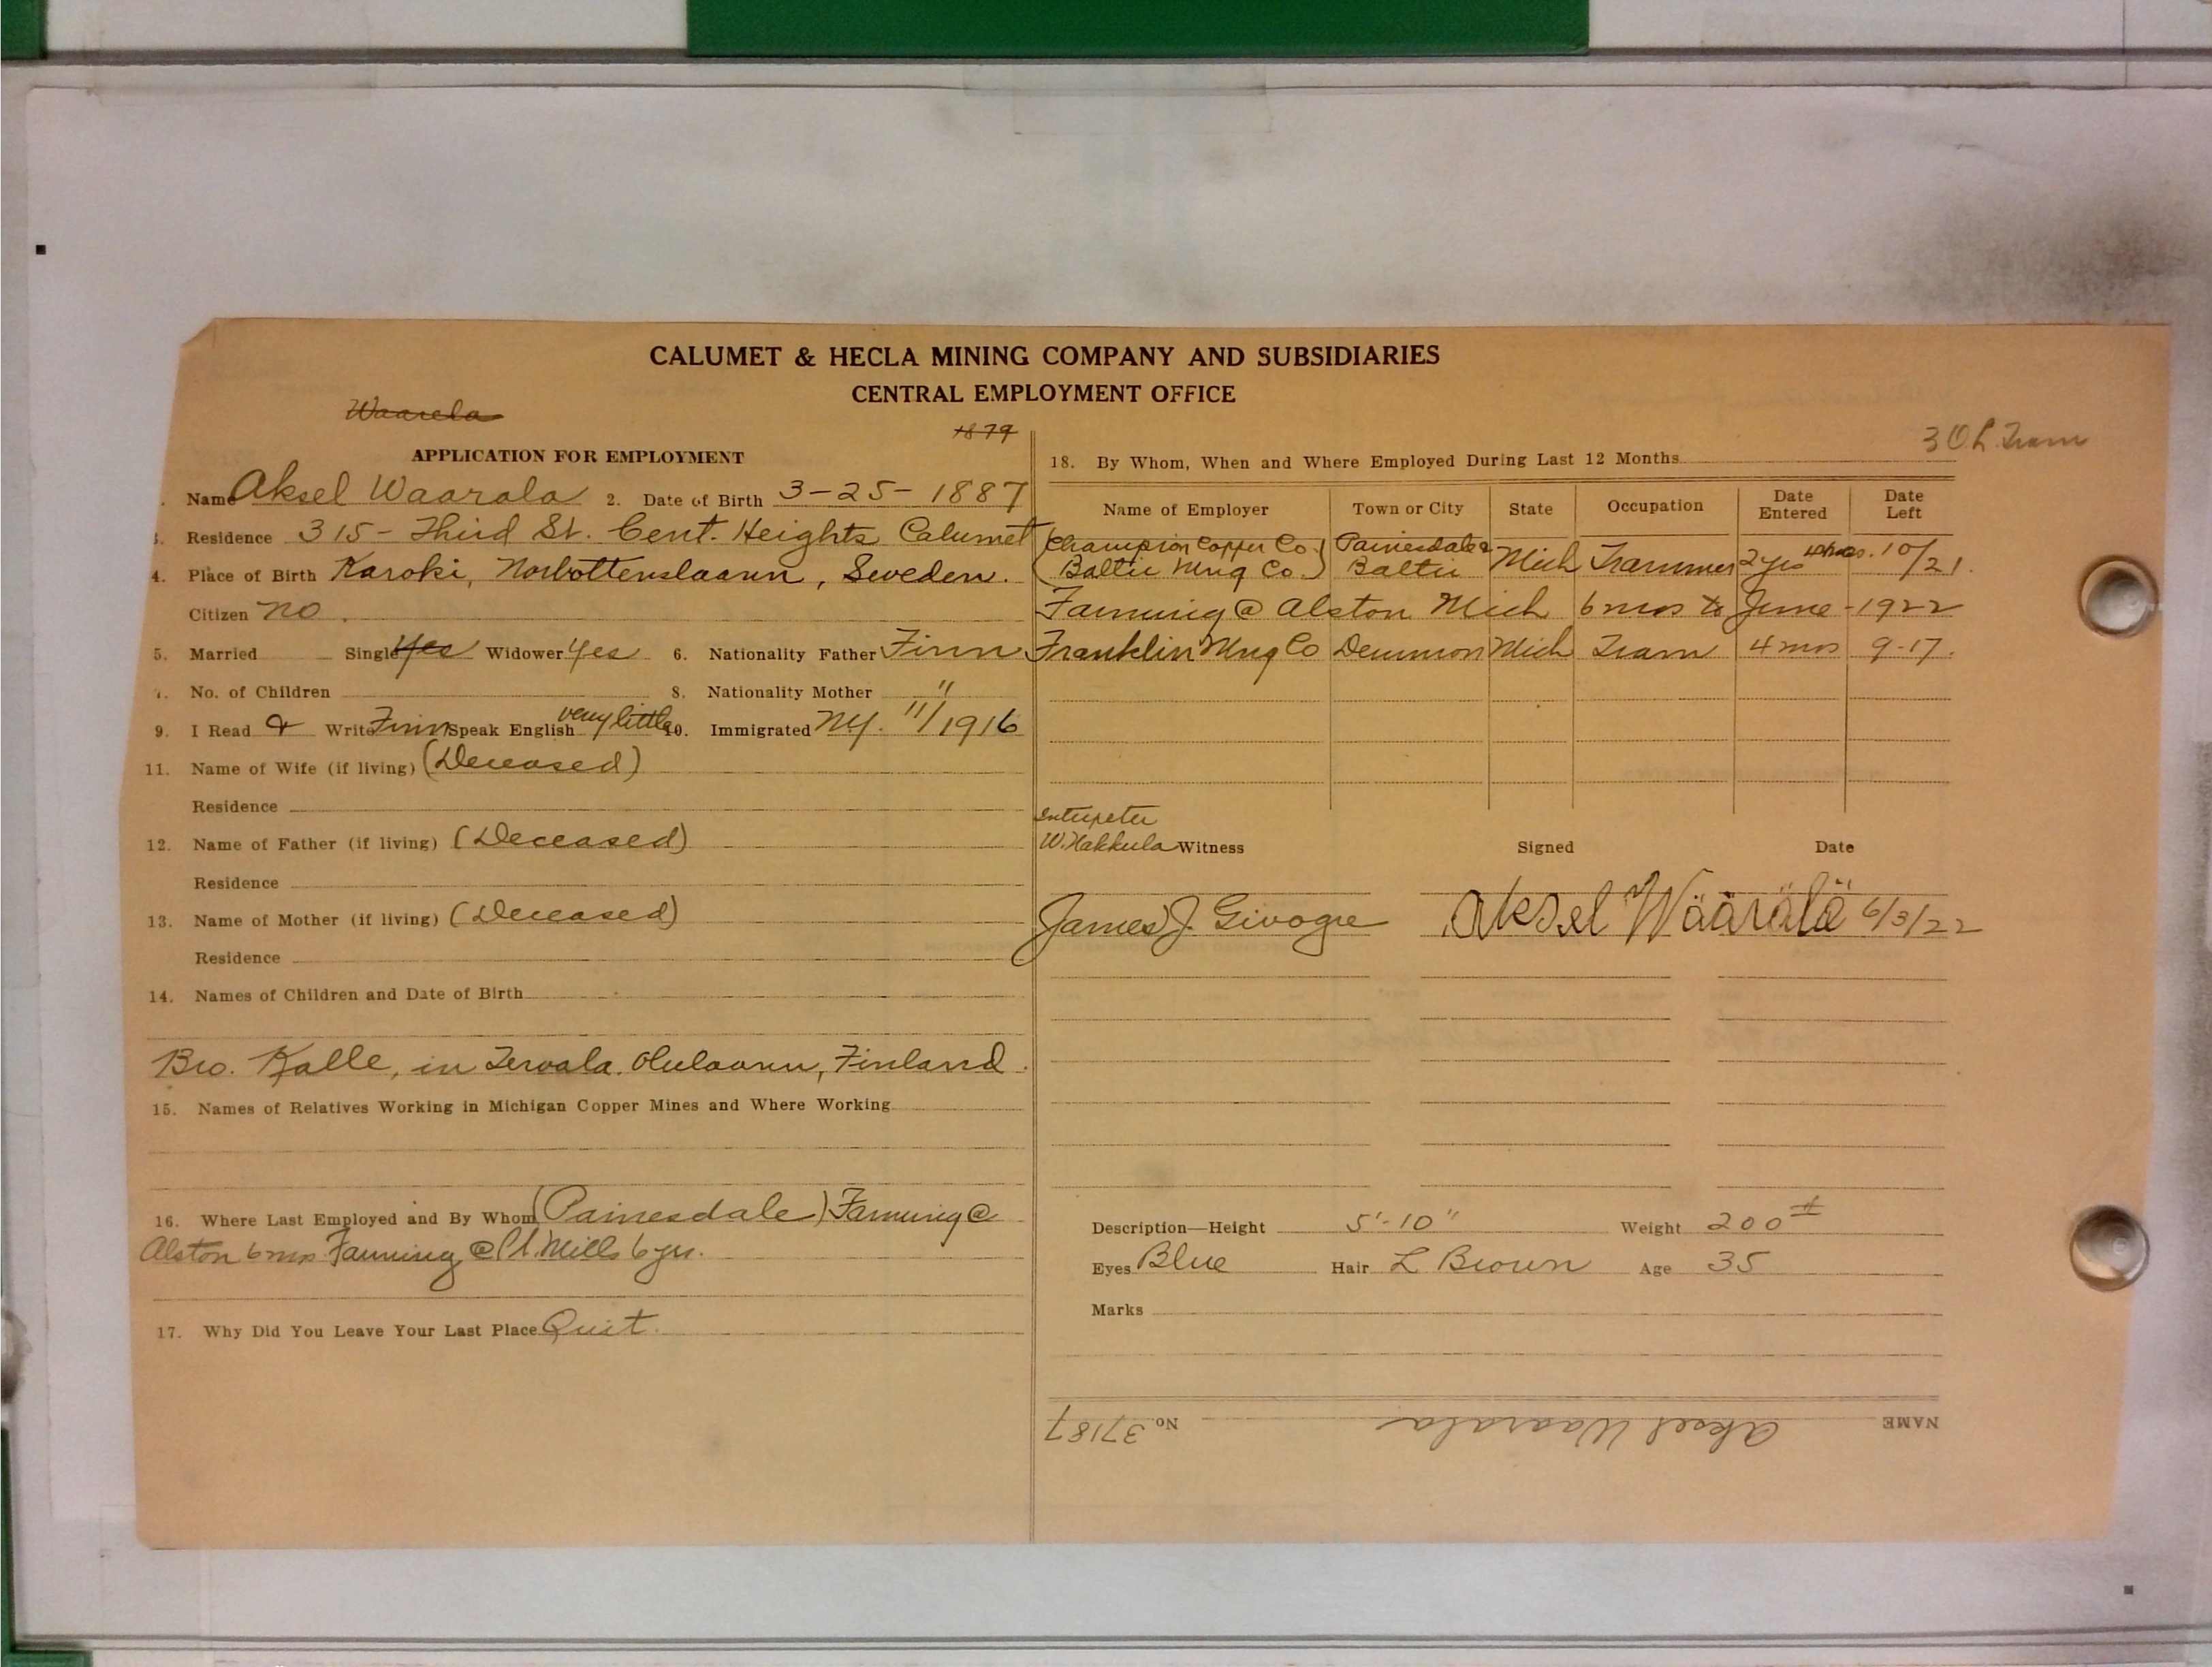 CALUMET & HECLA MINING COMPANY AND SUBSIDIARIES
CENTRAL EMPLOYMENT OFFICE
Waarela
1879
APPLICATION FOR EMPLOYMENT
Name Aksel Waarala 2. Date of Birth 3-25-1887
3. Residence 315-Third St. Cent. Heights Calumet
4. Place of Birth Karoki, Norbottenslaann, Sweden.
Citizen no.
5. Married Single Yes Widower Yes 6. Nationality Father Finn
No. of Children 8. Nationality Mother "
9. I Read & Write Finn Speak English very little 10. Immigrated NY. 11/1916
11. Name of Wife (if living) (Deceased)
Residence
12. Name of Father (if living) (Deceased)
Residence
13. Name of Mother (if living) (Deceased)
Residence
14. Names of Children and Date of Birth
Bro. Kalle, in Tervala. Olulaann, Finland.
15. Names of Relatives Working in Michigan Copper Mines and Where Working
16. Where Last Employed and By Whom (Painesdale) Farming @
Alston 6 mos Farming @ Mills 6 yrs.
17. Why Did You Leave Your Last Place Quit.
3 Oh. Tram
18. By Whom, When and Where Employed During Last 12 Months
Name of Employer Town or City State Occupation Date Entered Date Left
(Champion Copper Co.) Painesdale &
(Baltic Mng Co.) Baltic Mich Trammer 2 yrs 10/21.
Farming @ Alston Mich 6 mos to June-1922
Franklin Mng Co Demmon Mich Tram 4 mos 9-17.
Interpeter
W. Hakkula Witness Signed Date
James J. Givogre Aksel Wäärälä 6/3/22
Description—Height 5'-10" Weight 200#
Eyes Blue Hair L Brown Age 35
Marks
NAME Aksel Waarala No. 37187